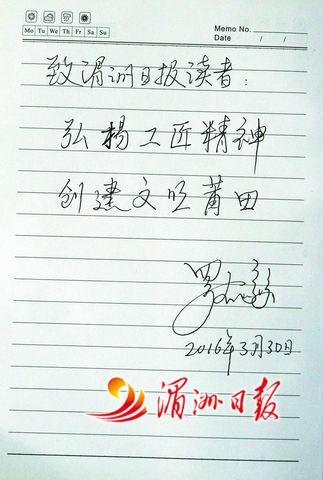 Memo No.
Mo Tu We Th Fr Sa Su
Date / /
致湄洲日报读者：
弘揚工匠精神
创建文明莆田
2016年3月30日
湄洲日報